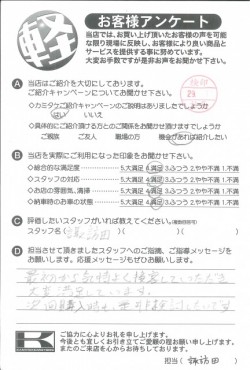 軽
お客様アンケート
当店では、お買い上げ頂いたお客様の声を可能
な限り現場に反映し、お客様により良い商品と
サービスを提供する事に努めております。
大変お手数ですが是非お声をお聞かせ下さい。
A 当店はご紹介を大切にしております。
ご紹介キャンペーンについてお聞かせ下さい。
29
◇カミタケご紹介キャンペーンのご説明はありましたでしょうか
はい いいえ
◇具体的にご紹介頂ける方とのご関係をお聞かせ頂けますでしょうか
ご親族 ご友人 職場の方 機会があれば紹介したい
B 当店を実際にご利用になった印象をお聞かせ下さい。
◇総合的な満足度 5.大満足 4.満足 3.ふつう 2.やや不満 1.不満
◇スタッフの対応 5.大満足 4.満足 3.ふつう 2.やや不満 1.不満
◇お店の雰囲気、清掃 5.大満足 4.満足 3.ふつう 2.やや不満 1.不満
◇納車時のお車の状態 5.大満足 4.満足 3.ふつう 2.やや不満 1.不満
C 評価したいスタッフがいれば教えてください。(複数回答可)
スタッフ名( 諏訪田 )
D 担当させて頂きましたスタッフへのご指摘、ご指導メッセージを
お願いします。応援メッセージもぜひお願いします。
最初から親切に接客していただき
大変満足しています。
次回購入時も是非検討したいです
ご協力に心よりお礼を申し上げます。
今後とも宜しくお引き立てご愛顧の程お願い申し上げます。
またのご来店を心からお待ちしております。
担当( 諏訪田 )